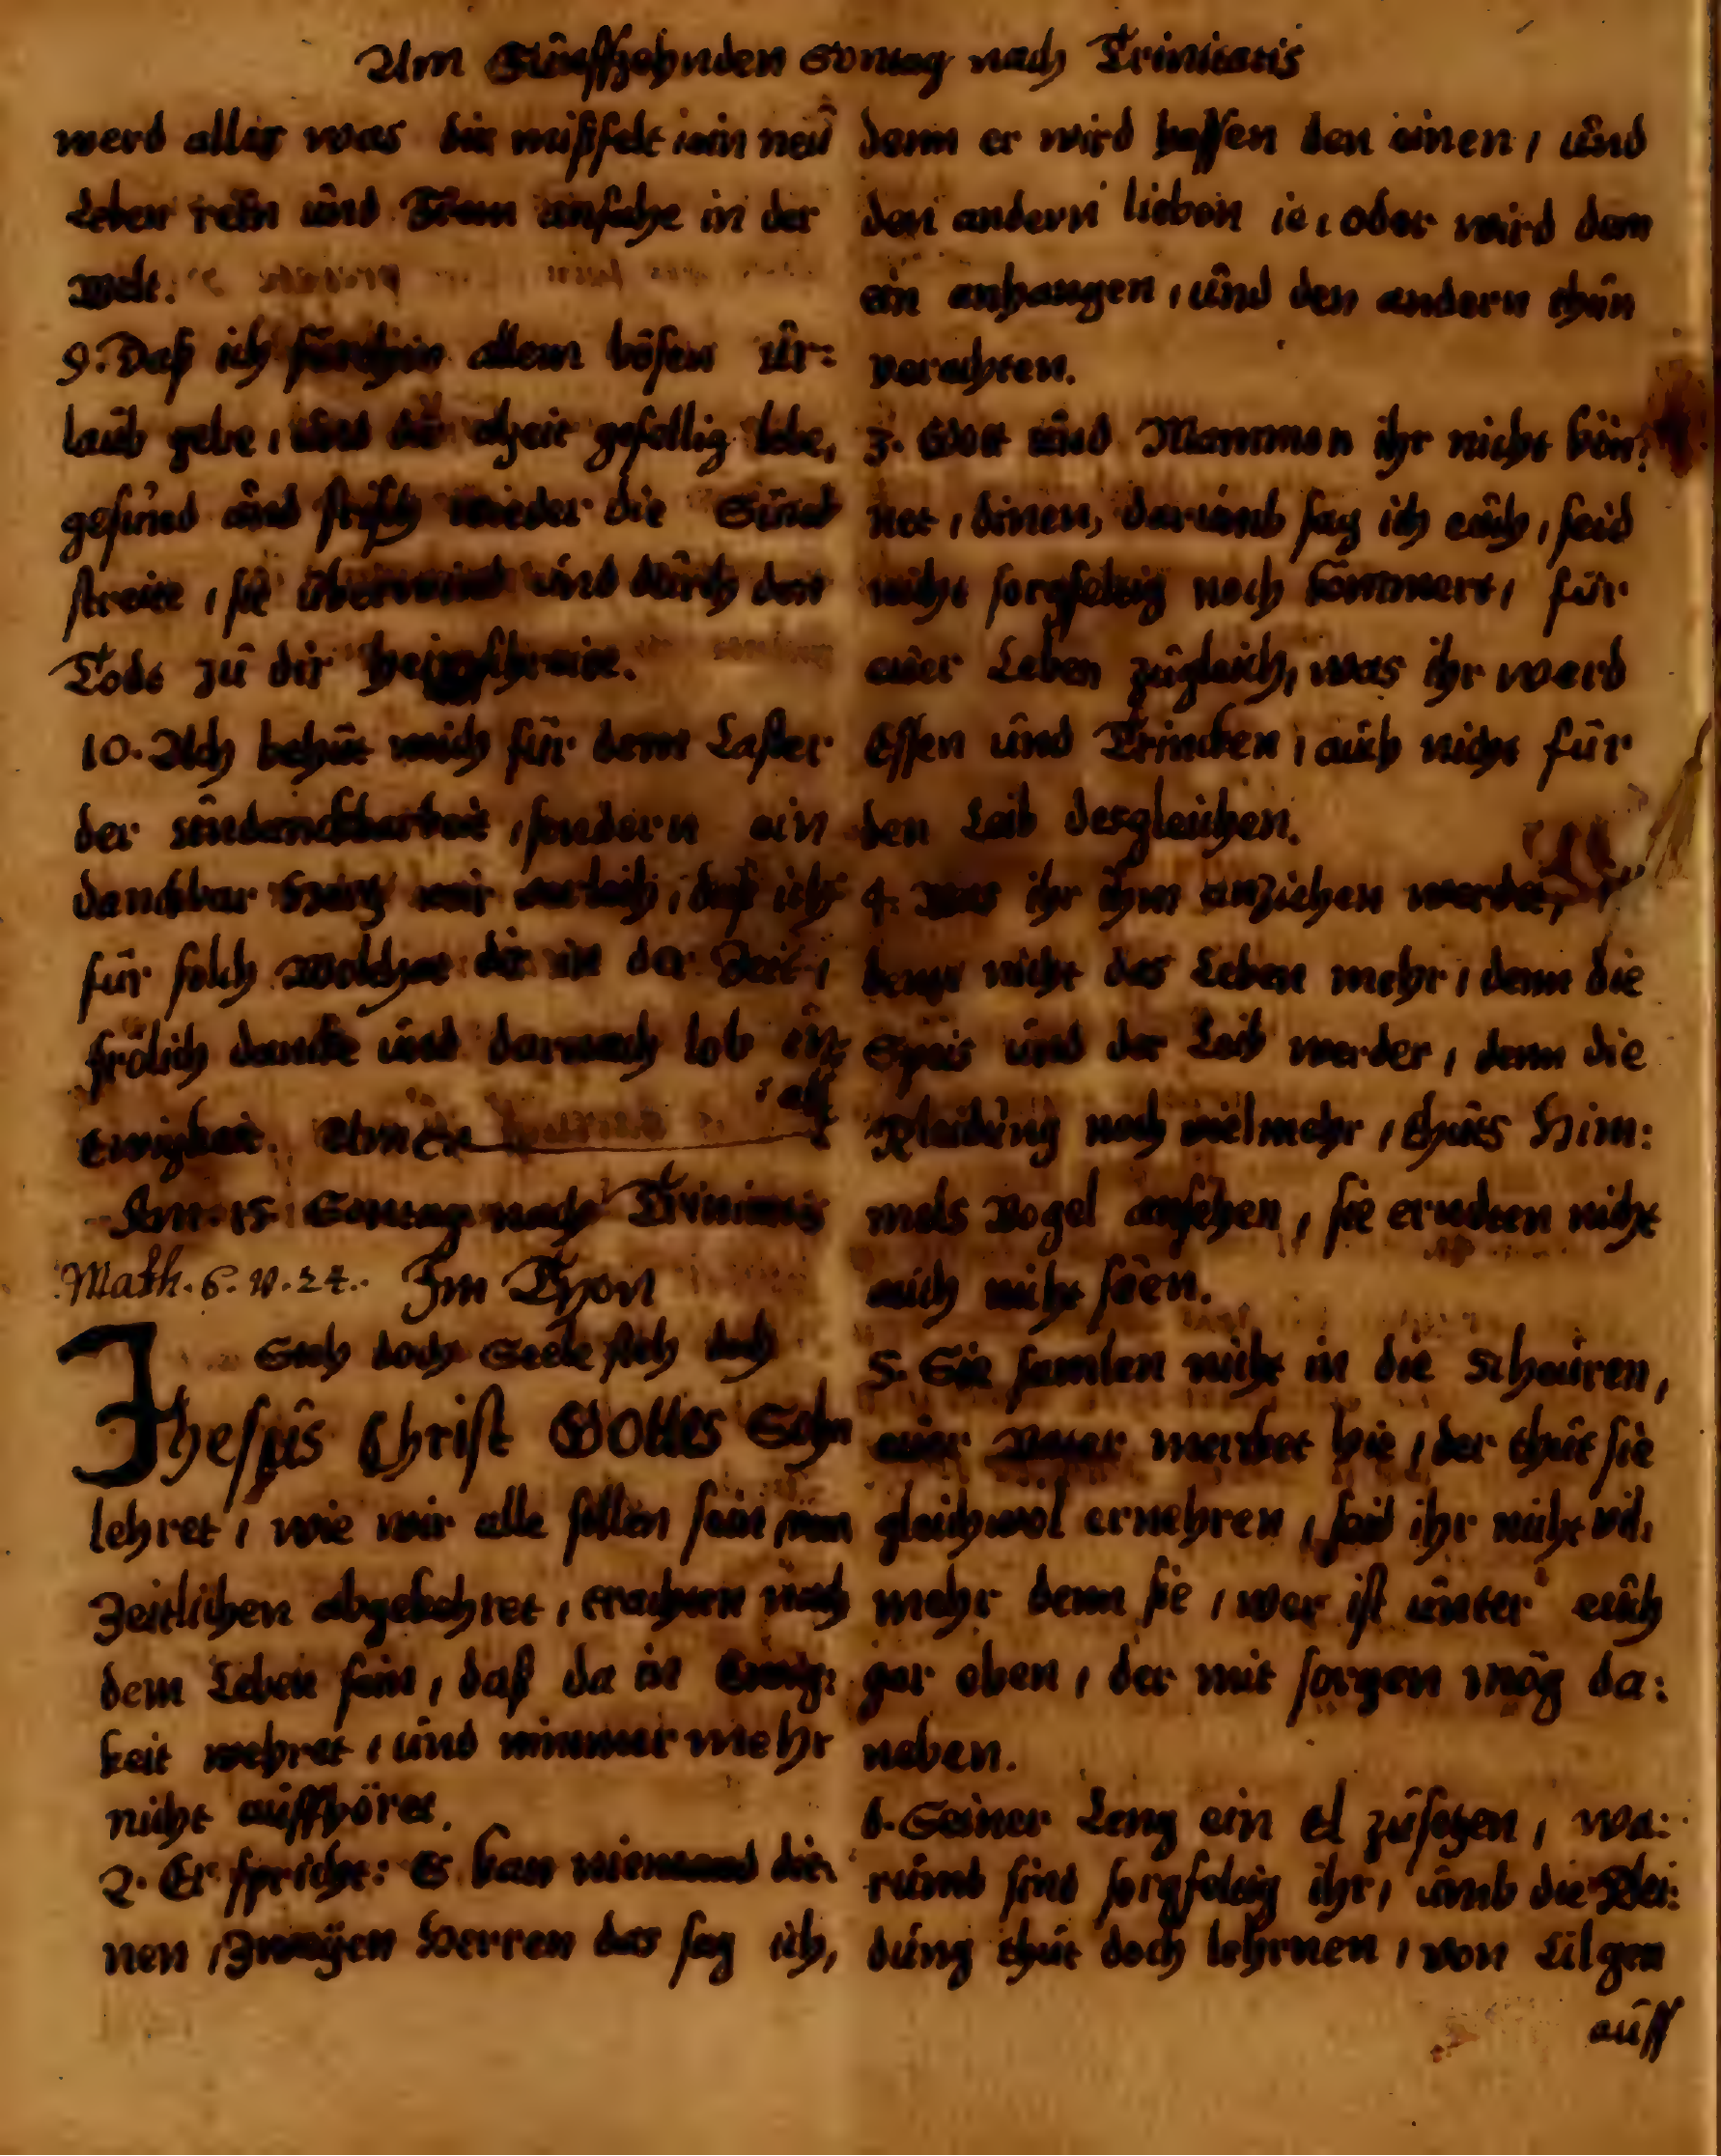 Am Fünffzehnden Sontag nach Trinitatis
werd alles was dir mißfelt ein neü
Leben rein ünd From anfahe in der
Welt.
9. Daß ich fürthin allem bösen ür:
laüb gebe, ünd dir alzeit gefellig lebe,
gesünd ünd frisch wieder die Sünd
streite, sie überwind ünd dürch den
Todt zü dir heimschreite.
10. Ach behüt mich für dem Laster
der ündanckbarkeit, sondern ein
danckbar Hertz mir verleih, daß ich
für solch Wolthat dir in der Zeit,
frölich dancke ünd darnach lob in
all
Ewigkeit. Amen
Am 15 Sontag nach Trinitatis
Math. 6. v. 24. Im Thon
Steh doch Seele steh doch
Jhesüs Christ GOttes Sohn
lehret, wie wir alle sollen sein, von
Zeitlichen abgekehret, trachten nach
dem Leben fein, daß da in Ewig:
keit wehret, ünd nimmer mehr
nicht aüffhöret.
2. Er spricht: Es kan niemand die:
nen, Zweÿen Herren das sag ich,
denn er wird hassen den einen, ünd
den andern lieben ie, oder wird dem
ein anhangen, ünd den andern thün
verachten.
3. Gott ünd Mammon ihr nicht kön:
net, dinen, darümb sag ich eüch, seid
nicht sorgfeltig noch kömmert, für
eüer Leben zügleich, was ihr werd
Essen ünd Trincken, aüch nicht für
den Leib desgleichen.
4. Was ihr ihm anziehen werdet,
denn nicht das Leben mehr, denn die
Speis ünd der Leib werder, denn die
Kleidüng noch vielmehr, thüts Him:
mels Vogel ansehen, sie erndten nicht
aüch nicht säen.
5. Sie samlen nicht in die Scheüren,
eüer Vater mercket hie, der thüt sie
gleichwol ernehren, seid ihr nicht vil,
mehr denn sie, wer ist ünter eüch
gar eben, der mit sorgen mög da:
neben.
6. Seiner Leng ein El züsetzen, wa:
rümb sind sorgfeltig ihr, ümb die Klei:
düng thüt doch lehrnen, von Lilgen
aüff